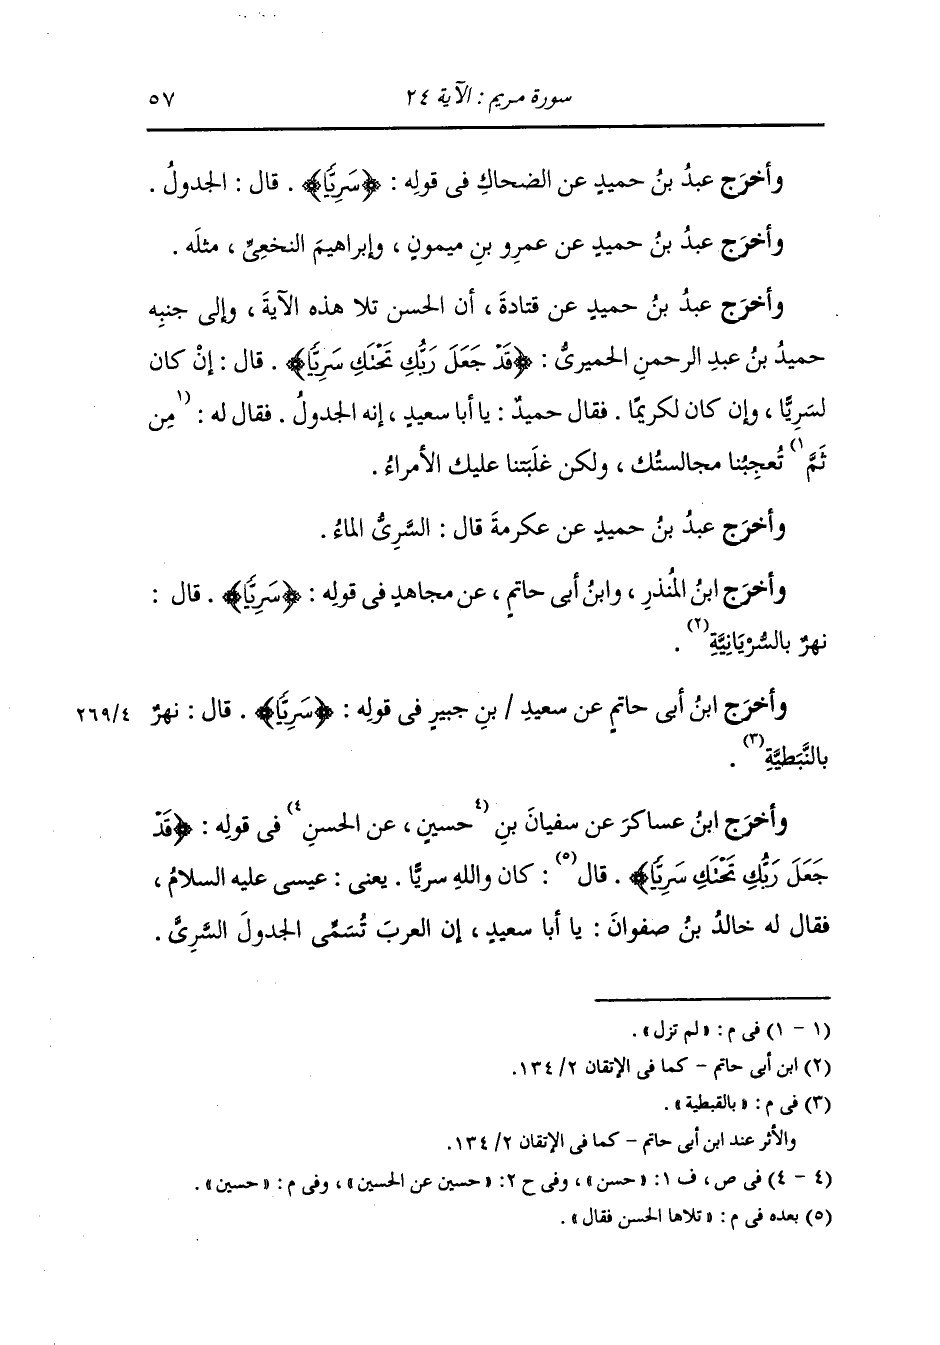 سورة مريم : الآية ٢٤
٥٧
وأخرَج عبدُ بنُ حميدٍ عن الضحاكِ فى قولِه : ﴿سَرِيًّا﴾ . قال : الجدولُ .
وأخرَج عبدُ بنُ حميدٍ عن عمرِو بنِ ميمونٍ ، وإبراهيمَ النخعِىِّ ، مثلَه .
وأخرَج عبدُ بنُ حميدٍ عن قتادةَ ، أن الحسن تلا هذه الآيةَ ، وإلى جنبِه
حميدُ بنُ عبدِ الرحمنِ الحميرىُّ : ﴿قَدْ جَعَلَ رَبُّكِ تَحْتَكِ سَرِيًّا﴾ . قال : إنْ كان
لسَرِيًّا ، وإن كان لكريمًا . فقال حميدٌ : يا أبا سعيدٍ ، إنه الجدولُ . فقال له : (١مِن
ثَمَّ١) تُعجِبُنا مجالستُك ، ولكن غلَبَتنا عليك الأمراءُ .
وأخرَج عبدُ بنُ حميدٍ عن عكرمةَ قال : السَّرِىُّ الماءُ .
وأخرَج ابنُ المُنذرِ ، وابنُ أبى حاتمٍ ، عن مجاهدٍ فى قولِه : ﴿سَرِيًّا﴾ . قال :
نهرٌ بالسُّرْيَانِيَّةِ(٢) .
وأخرَج ابنُ أبى حاتمٍ عن سعيدِ / بنِ جبيرٍ فى قولِه : ﴿سَرِيًّا﴾ . قال : نهرٌ ٢٦٩/٤
بالنَّبَطيَّةِ(٣) .
وأخرَج ابنُ عساكرَ عن سفيانَ بنِ (٤حسينٍ ، عن الحسنِ٤) فى قولِه : ﴿قَدْ
جَعَلَ رَبُّكِ تَحْتَكِ سَرِيًّا﴾ . قال(٥) : كان واللهِ سريًّا . يعنى : عيسى عليه السلامُ ،
فقال له خالدُ بنُ صفوانَ : يا أبا سعيدٍ ، إن العربَ تُسَمِّى الجدولَ السَّرِىَّ .
(١ - ١) فى م : « لم تزل » .
(٢) ابن أبى حاتم - كما فى الإتقان ٢/ ١٣٤.
(٣) فى م : « بالقبطية » .
والأثر عند ابن أبى حاتم - كما فى الإتقان ٢/ ١٣٤.
(٤ - ٤) فى ص ، ف ١: « حسن » ، وفى ح ٢: « حسين عن الحسين » ، وفى م : « حسين » .
(٥) بعده فى م : « تلاها الحسن فقال » .